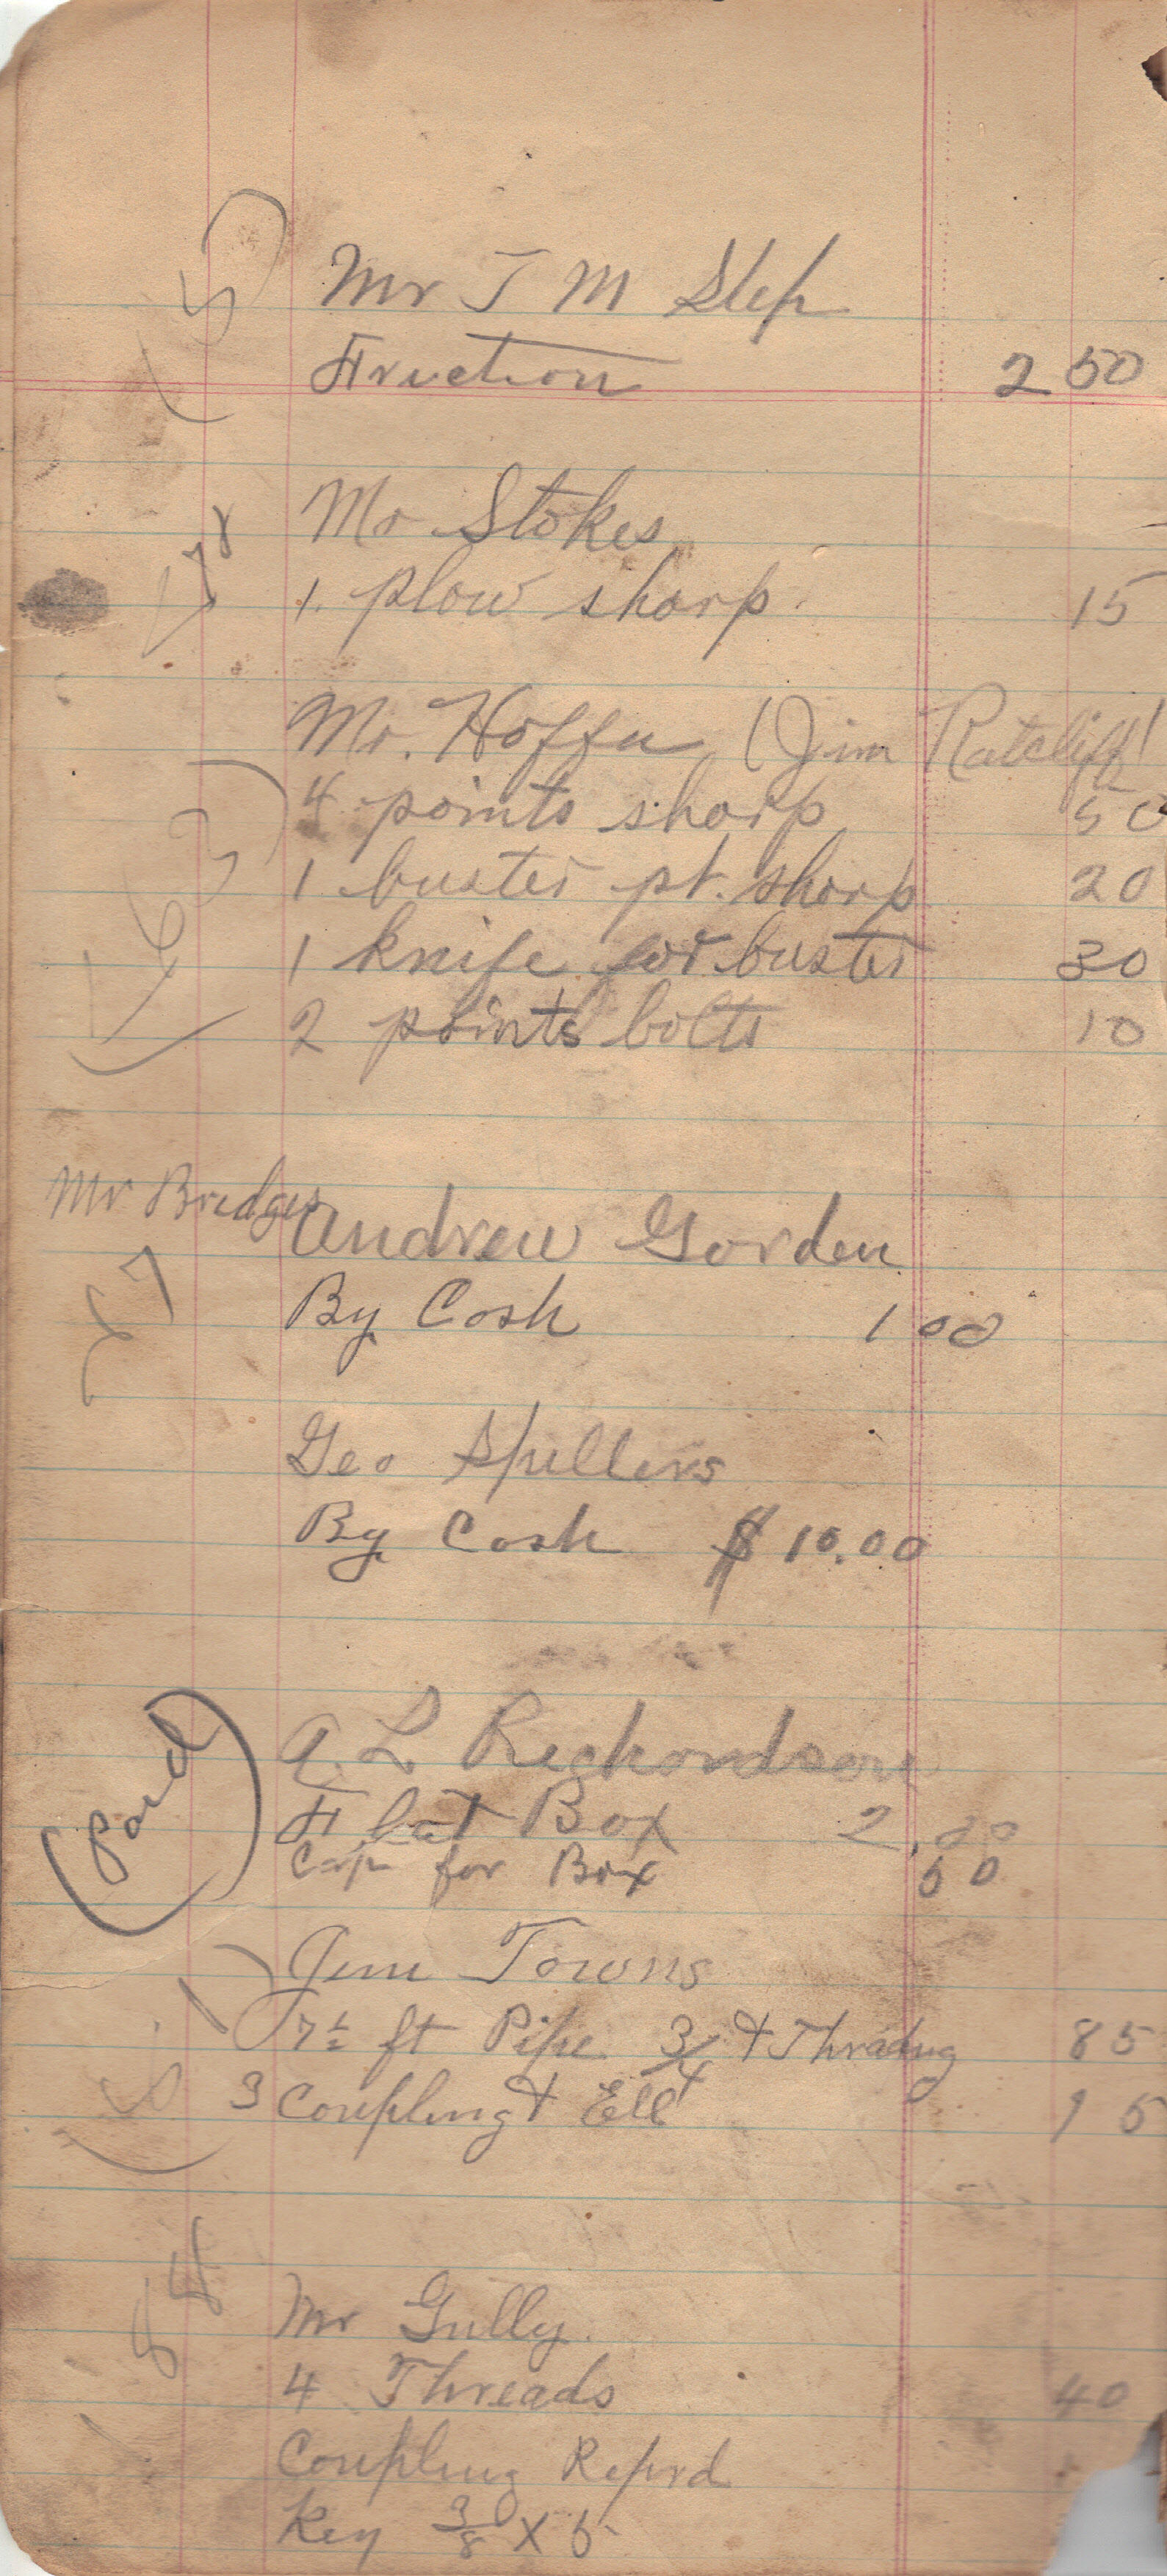 Mr J M Step
Friction 2 50
Mr Stokes
78
1. plow sharp. 15
Mr. Hoffu (Jim Ratcliff)
4 points sharp 50
1 buster pt. sharp 20
1 knife for buster 30
2 points bolts 10
Mr Bridges Andrew Gorden
By Cash 1 00
Geo Spillers
By Cash $10.00
(Paid)
A L Reghordson
Flat Box 2.00
Cap for Box 50
Jim Towns
7½ ft Pipe 3/4 & Thradng 85
3 Coupling & Ell 15
84
Mr Gully.
4 Threads 40
Coupling Reprd
Key 3/8 X 5